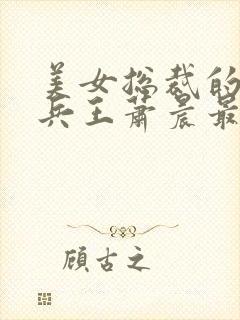 美女捴裁的
兵王萧晨最
顾古之